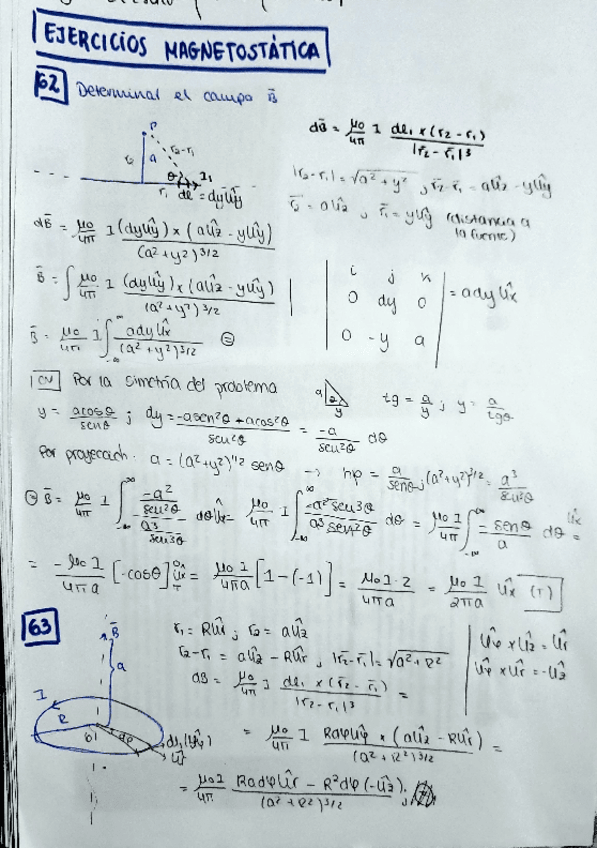 EJERCICIOS MAGNETOSTÁTICA
62 Determinar el campo B̄
P
r₂ a r₂-r₁
θ I₁
r₁ dl̄ = dyûy
dB̄ = μ₀/4π I dl₁ × (r̄₂ - r̄₁)/|r̄₂ - r̄₁|³
|r₂-r₁| = √(a² + y²) ; r̄₂-r̄₁ = aûz - yûy
r̄₂ = aûz ; r̄₁ = yûy (distancia a
la fuente)
dB̄ = μ₀/4π I (dyûy) × (aûz - yûy)/(a² + y²)^3/2
B̄ = ∫ μ₀/4π I (dyûy) × (aûz - yûy)/(a² + y²)^3/2
| i j k |
| 0 dy 0 | = adyûx
| 0 -y a |
B̄ = μ₀/4π I ∫_-∞^∞ adyûx/(a² + y²)^3/2 ⊜
CV Por la simetría del problema
a y tg = a/y ; y = a/tgθ
y = acosθ/senθ ; dy = -asen²θ + acos²θ/sen²θ = -a/sen²θ dθ
Por proyección: a = (a² + y²)^1/2 senθ → hip = a/senθ ; (a² + y²)^3/2 = a³/sen³θ
⊜ B̄ = μ₀/4π I ∫_-∞^∞ (-a²/sen²θ)/(a³/sen³θ) dθûx = μ₀/4π I ∫_-∞^∞ -a² sen³θ/a³ sen²θ dθ = μ₀I/4π ∫_-∞^∞ -senθ/a dθ ûx =
= -μ₀I/4πa [-cosθ]_π^0 ûx = μ₀I/4πa [1-(-1)] = μ₀I·2/4πa = μ₀I/2πa ûx (T)
63
B̄
a
I
R
dφ
r₁ = Rûr ; r₂ = aûz
r₂-r₁ = aûz - Rûr ; |r̄₂-r̄₁| = √(a² + R²)
dB = μ₀/4π I dl₁ × (r̄₂ - r̄₁)/|r̄₂ - r̄₁|³ =
ûφ × ûz = ûr
ûφ × ûr = -ûz
= μ₀/4π I Rdφûφ × (aûz - Rûr)/(a² + R²)^3/2 =
= μ₀I/4π Radφûr - R²dφ(-ûz)/(a² + R²)^3/2 ;